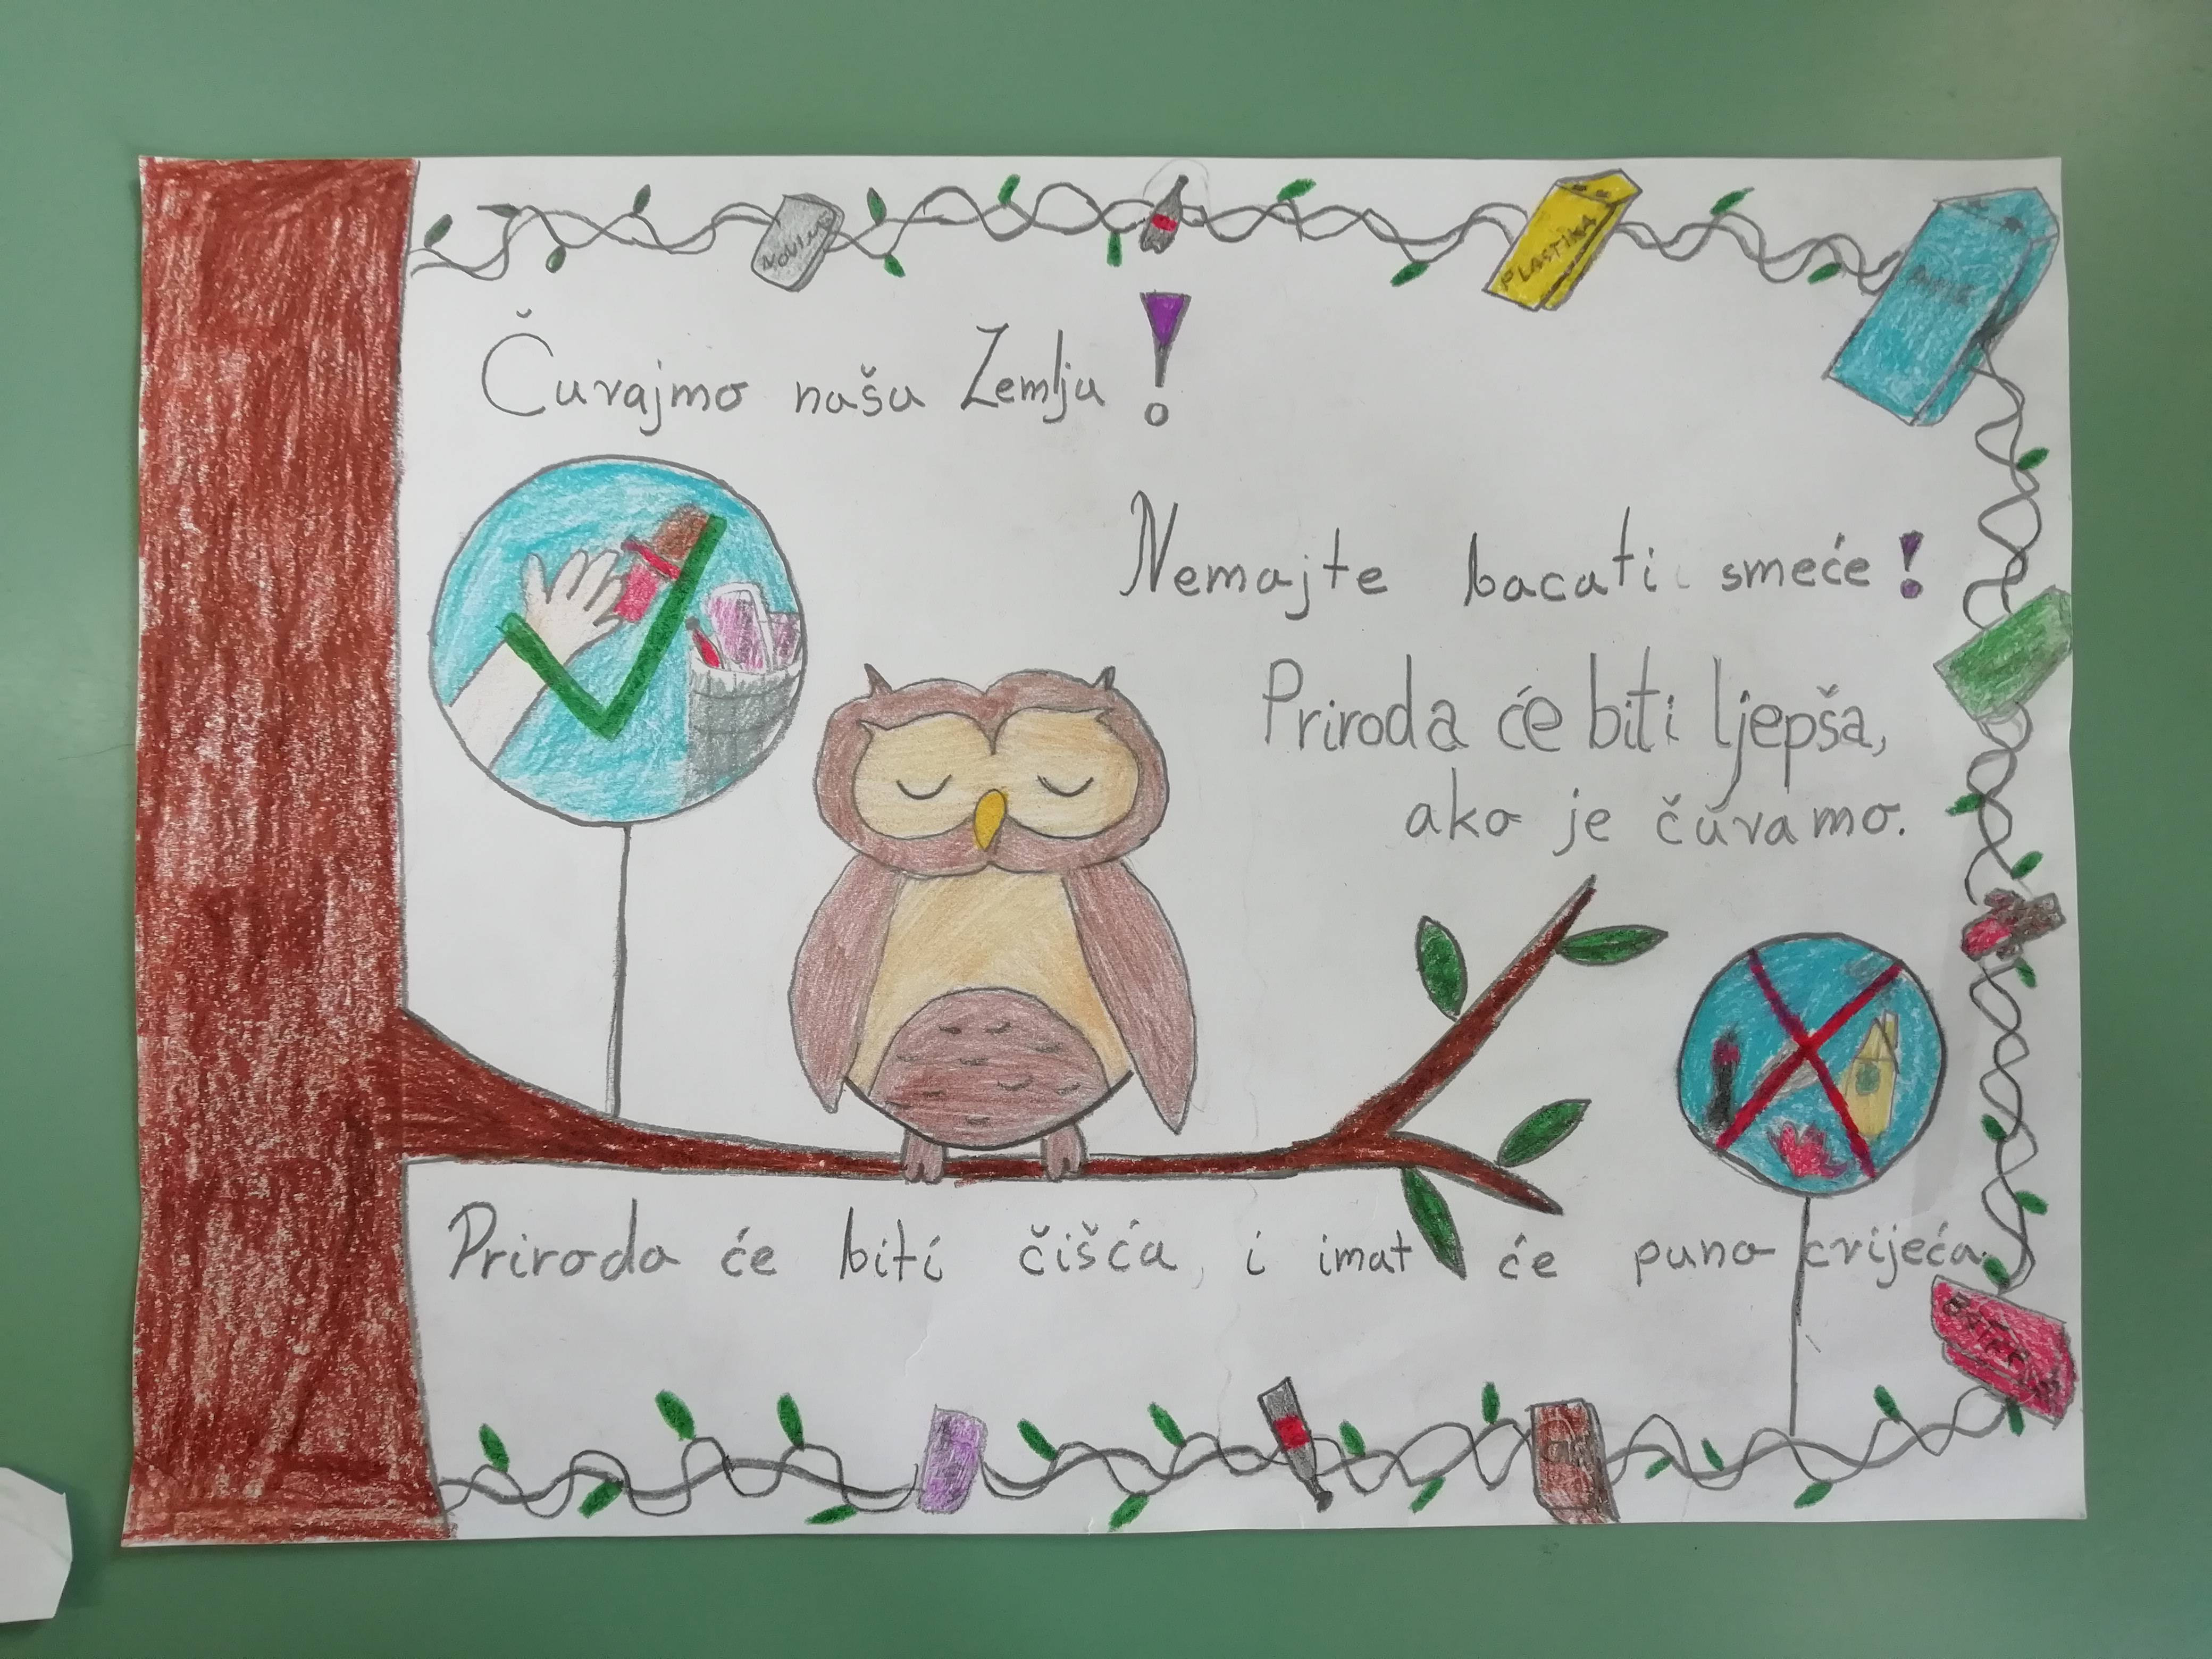 NOVINE
PLASTIKA
Čuvajmo našu Zemlju!
Nemajte bacati smeće!
Priroda će biti ljepša,
ako je čuvamo.
Priroda će biti čišća, i imat će puno cvijeća